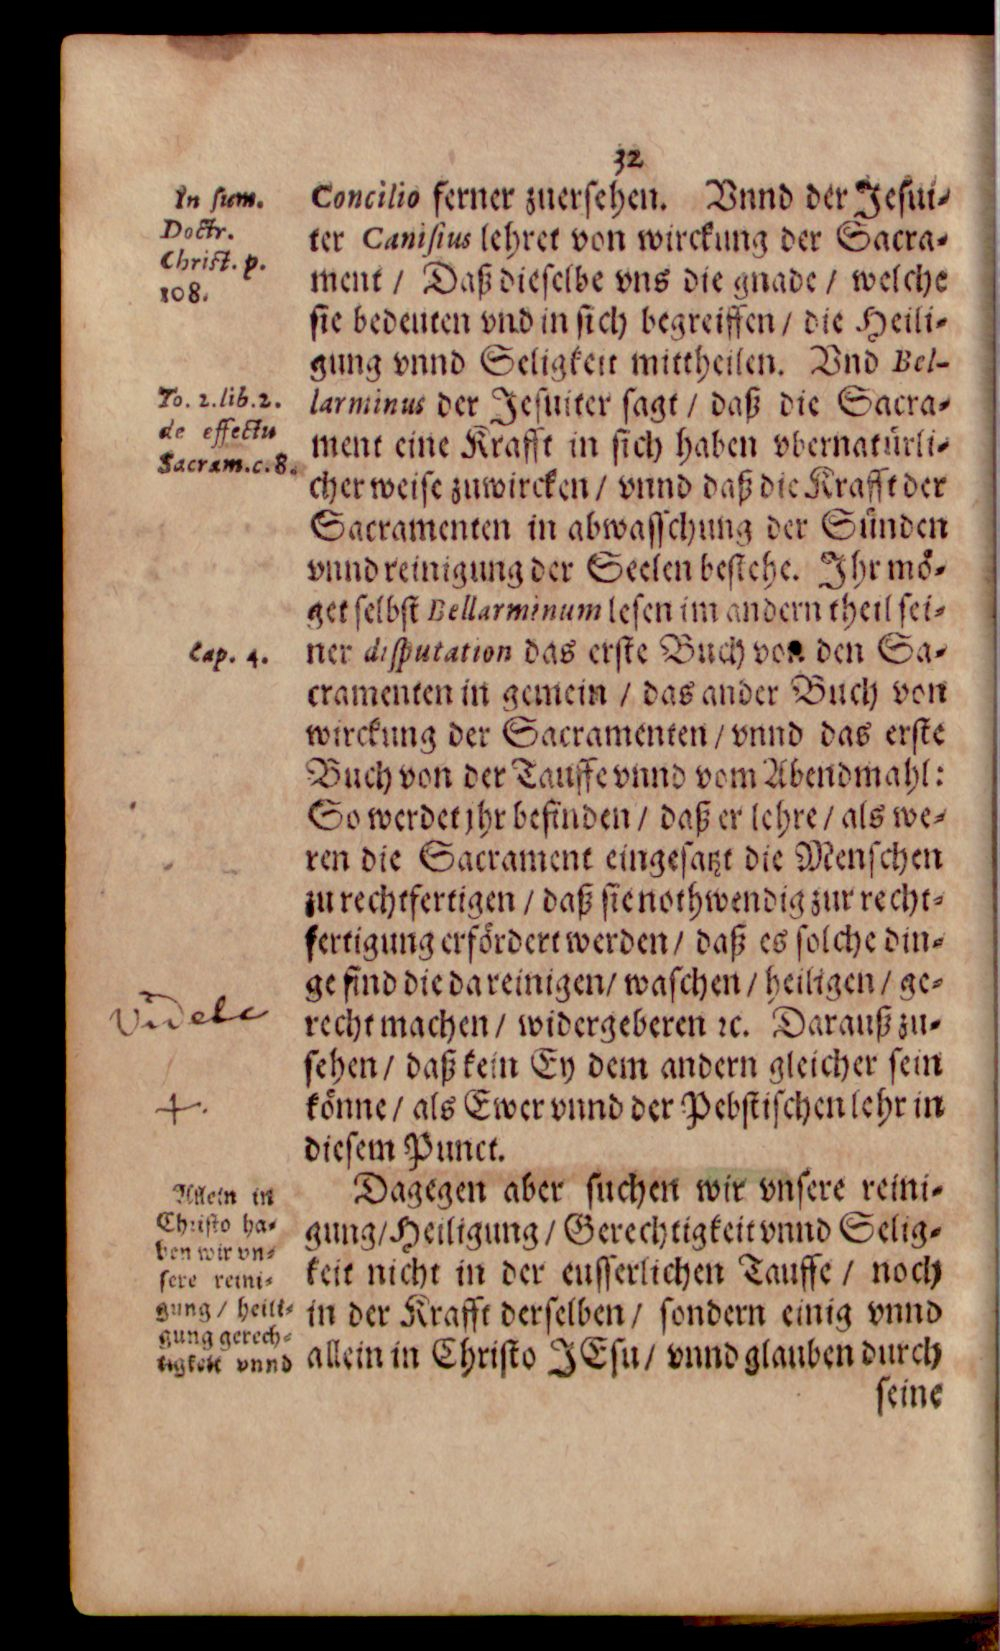 32
In sum.
Doctr.
Christ. p.
108.
Concilio ferner zuersehen. Vnnd der Jesui-
ter Canisius lehret von wirckung der Sacra-
ment / Daß dieselbe vns die gnade / welche
sie bedeuten vnd in sich begreiffen / die Heili-
gung vnnd Seligkeit mittheilen. Vnd Bel-
To. 2. lib. 2.
de effectu
Sacram. c. 8.
larminus der Jesuiter sagt / daß die Sacra-
ment eine Krafft in sich haben vbernatürli-
cher weise zuwircken / vnnd daß die Krafft der
Sacramenten in abwasschung der Sünden
vnnd reinigung der Seelen bestehe. Ihr mö-
get selbst Bellarminum lesen im andern theil sei-
Cap. 4.
ner disputation das erste Buch von den Sa-
cramenten in gemein / das ander Buch von
wirckung der Sacramenten / vnnd das erste
Buch von der Tauffe vnnd vom Abendmahl:
So werdet jhr befinden / daß er lehre / als we-
ren die Sacrament eingesatzt die Menschen
zu rechtfertigen / daß sie nothwendig zur recht-
fertigung erfördert werden / daß es solche din-
ge sind die da reinigen / waschen / heiligen / ge-
recht machen / widergeberen ꝛc. Darauß zu-
sehen / daß kein Ey dem andern gleicher sein
+.
könne / als Ewer vnnd der Pebstischen lehr in
diesem Punct.
Allein in
Christo ha-
ben wir vn-
sere reini-
gung / heili-
gung gerech-
tigkeit vnnd
Dagegen aber suchen wir vnsere reini-
gung / Heiligung / Gerechtigkeit vnnd Selig-
keit nicht in der eusserlichen Tauffe / noch
in der Krafft derselben / sondern einig vnnd
allein in Christo JEsu / vnnd glauben durch
seine